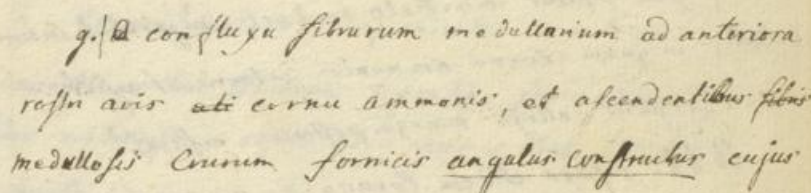 g.) A confluxu fibrarum medullarium ad anteriora
rostri avis uti cornu ammonis, et ascendentibus fibris
medullosis Crurum fornicis angulus constructus cujus